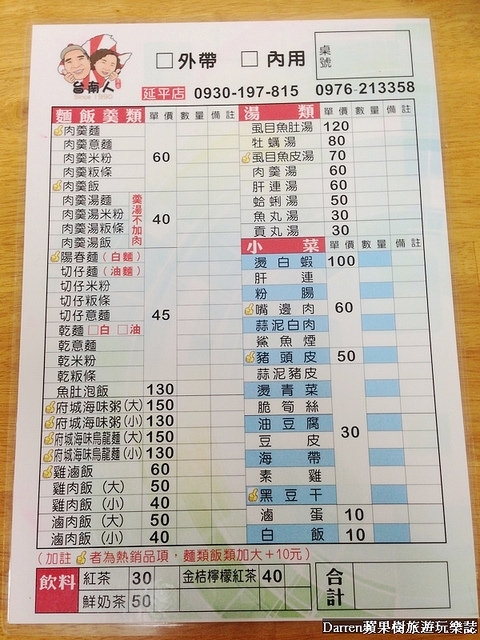 台南人
SINCE 1990
□外帶 □內用
桌號
延平店 0930-197-815 0976-213358
麵飯羹類 單價 數量 備註
肉羹麵
肉羹意麵
肉羹米粉 60
肉羹粄條
肉羹飯
肉羹湯麵
肉羹湯米粉 40
肉羹湯粄條
肉羹湯飯
羹湯不加肉
陽春麵(白麵)
切仔麵(油麵)
切仔米粉
切仔粄條
切仔意麵 45
乾麵 □白 □油
乾意麵
乾米粉
乾粄條
魚肚泡飯 130
府城海味粥(大) 150
府城海味粥(小) 130
府城海味烏龍麵(大) 150
府城海味烏龍麵(小) 130
雞滷飯 60
雞肉飯(大) 50
雞肉飯(小) 40
滷肉飯(大) 50
滷肉飯(小) 40
湯類 單價 數量 備註
虱目魚肚湯 120
牡蠣湯 80
虱目魚皮湯 70
肉羹湯 60
肝連湯 60
蛤蜊湯 50
魚丸湯 30
貢丸湯 30
小菜 單價 數量 備註
燙白蝦 100
肝連
粉腸
嘴邊肉 60
蒜泥白肉
鯊魚煙
豬頭皮 50
蒜泥豬皮
燙青菜
脆筍絲
油豆腐
豆皮 30
海帶
素雞
黑豆干
滷蛋 10
白飯 10
(加註 者為熱銷品項,麵類飯類加大+10元)
飲料 紅茶 30 金桔檸檬紅茶 40
鮮奶茶 50
合計
Darren蘋果樹旅遊玩樂誌